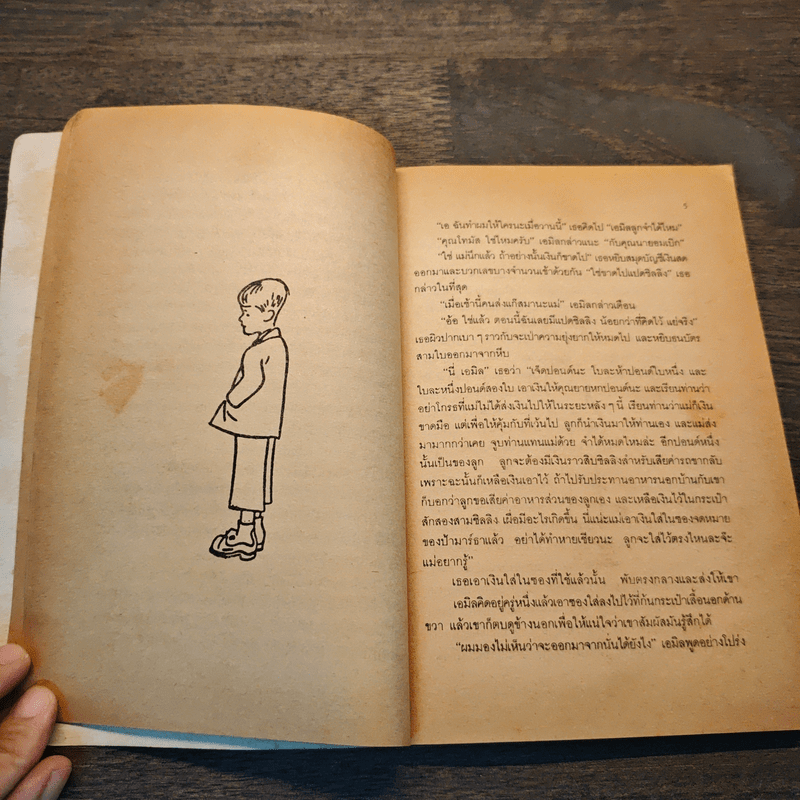 5
"เอ ฉันทำผมให้ใครนะเมื่อวานนี้" เธอคิดไป "เอมิลลูกจำได้ไหม"
"คุณโทมัส ใช่ไหมครับ" เอมิลกล่าวแนะ "กับคุณนายอมเบิก"
"ใช่ แม่นึกแล้ว ถ้าอย่างนั้นเงินก็ขาดไป" เธอหยิบสมุดบัญชีเงินสด
ออกมาและบวกเลขบางจำนวนเข้าด้วยกัน "ใช่ขาดไปแปดชิลลิง" เธอ
กล่าวในที่สุด
"เมื่อเช้านี้คนส่งแก๊สมานะแม่" เอมิลกล่าวเตือน
"อ้อ ใช่แล้ว ตอนนี้ฉันเลยมีแปดชิลลิง น้อยกว่าที่คิดไว้ แย่จริง"
เธอผิวปากเบา ๆ ราวกับจะเป่าความยุ่งยากให้หมดไป และหยิบธนบัตร
สามใบออกมาจากหีบ
"นี่ เอมิล" เธอว่า "เจ็ดปอนด์นะ ใบละห้าปอนด์ใบหนึ่ง และ
ใบละหนึ่งปอนด์สองใบ เอาเงินให้คุณยายหกปอนด์นะ และเรียนท่านว่า
อย่าโกรธที่แม่ไม่ได้ส่งเงินไปให้ในระยะหลัง ๆ นี้ เรียนท่านว่าแม่ก็เงิน
ขาดมือ แต่เพื่อให้คุ้มกับที่เว้นไป ลูกก็นำเงินมาให้ท่านเอง และแม่ส่ง
มามากกว่าเคย จูบท่านแทนแม่ด้วย จำได้หมดไหมล่ะ อีกปอนด์หนึ่ง
นั้นเป็นของลูก ลูกจะต้องมีเงินราวสิบชิลลิงสำหรับเสียค่ารถขากลับ
เพราะฉะนั้นก็เหลือเงินเอาไว้ ถ้าไปรับประทานอาหารนอกบ้านกับเขา
ก็บอกว่าลูกขอเสียค่าอาหารส่วนของลูกเอง และเหลือเงินไว้ในกระเป๋า
สักสองสามชิลลิง เผื่อมีอะไรเกิดขึ้น นี่แน่ะแม่เอาเงินใส่ในซองจดหมาย
ของป้ามาร์ธาแล้ว อย่าได้ทำหายเชียวนะ ลูกจะใส่ไว้ตรงไหนละจ๊ะ
แม่อยากรู้"
เธอเอาเงินใส่ในซองที่ใช้แล้วนั้น พับตรงกลางและส่งให้เขา
เอมิลคิดอยู่ครู่หนึ่งแล้วเอาซองใส่ลงไปไว้ที่ก้นกระเป๋าเสื้อนอกด้าน
ขวา แล้วเขาก็ตบดูข้างนอกเพื่อให้แน่ใจว่าเขาสัมผัสมันรู้สึกได้
"ผมมองไม่เห็นว่าจะออกมาจากนั่นได้ยังไง" เอมิลพูดอย่างโปร่ง